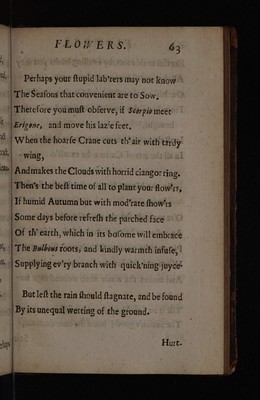 FLOWERS. 63
Perhaps your ſtupid lab'rers may not know
The Seaſons that convenient are to Sow.
Therefore you muſt obſerve, if Scorpio meet
Erigone, and move his lazie feet.
When the hoarſe Crane cuts th' air with tardy
wing,
And makes the Clouds with horrid clangor ring.
Then's the beſt time of all to plant your flow'rs,
If humid Autumn but with mod'rate ſhow'rs
Some days before refreſh the parched face
Of th' earth, which in its boſome will embrace
The Bulbous roots, and kindly warmth infuſe,
Supplying ev'ry branch with quick'ning juyce
But leſt the rain ſhould ſtagnate, and be found
By its unequal wetting of the ground.
Hurt-